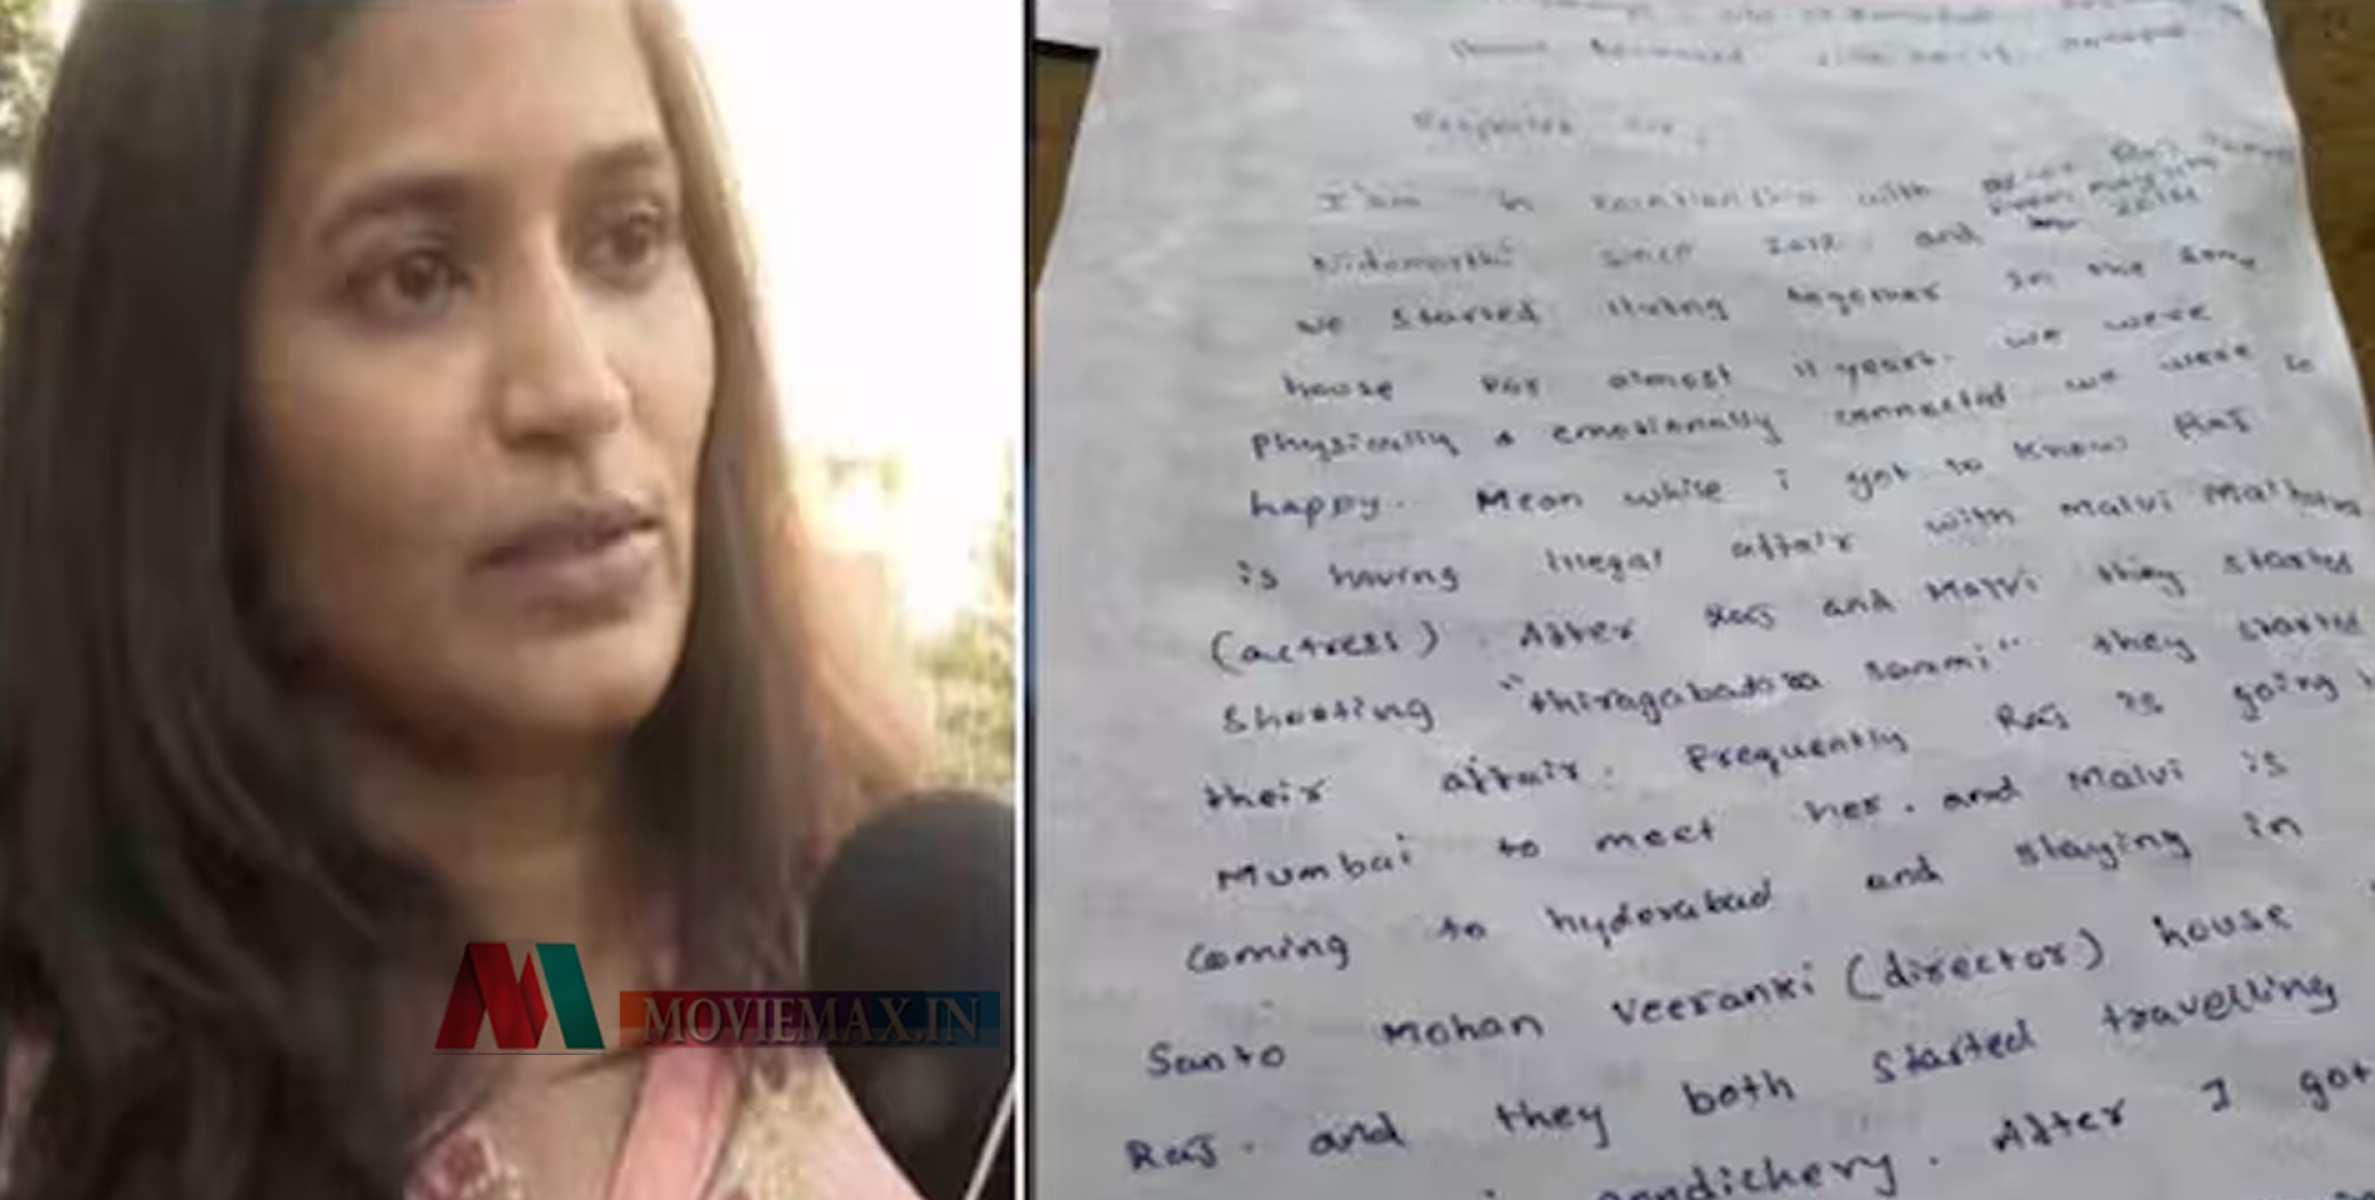 MOVIEMAX.IN
Respected sir,
I'am in relationship with Raj
Nidamarthi since 2012. and
we started living together in the same
house for almost 11 years. we were
physically & emotionally connected we were so
happy. Mean while i got to know Raj
is having illegal affair with Malvi Malhotra
(actress). After Raj and Malvi they started
shooting "thiragabadara saami" they started
their affair. Frequently Raj is going
Mumbai to meet her. and Malvi is
coming to hyderabad and staying in
Santo Mohan Veeranki (director) house
Raj. and they both started travelling
pondichery. After I got